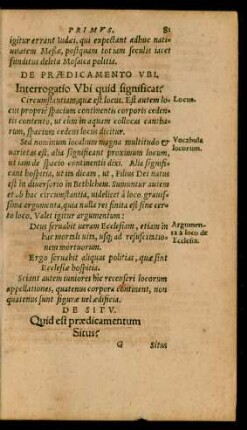 PRIMVS. 81
igitur errant Iudæi, qui expectant adhuc nati-
uitatem Messiæ, postquam tot iam seculis iacet
funditus deleta Mosaica politia.
DE PRÆDICAMENTO VBI.
Interrogatio Vbi quid significat?
Circunstantiam, quæ est locus. Est autem lo-
Locus.
cus propriè spacium continentis corporis ceden-
tis contento, ut cùm in aquam collocas cantha-
rum, spacium cedens locus dicitur.
Sed nominum localium magna multitudo &
Vocabula
locorum.
uarietas est, alia significant proximum locum,
ut iam de spacio continentis dixi. Alia signifi-
cant hospitia, ut iam dicam, ut, Filius Dei natus
est in diuersorio in Bethlehem. Sumuntur autem
et ab hac circunstantia, uidelicet à loco grauis-
sima argumenta, quia nulla res finita est sine cer-
to loco, Valet igitur argumentum:
Deus seruabit ueram Ecclesiam, etiam in
Argumen-
ta à loco de
Ecclesia.
hac mortali uita, usq; ad resuscitatio-
nem mortuorum.
Ergo seruabit aliquas politias, quæ sint
Ecclesiæ hospitia.
Sciant autem iuniores hic recenseri locorum
appellationes, quatenus corpora continent, non
quatenus sunt figuræ uel ædificia.
DE SITV.
Quid est prædicamentum
Situs?
G Situs